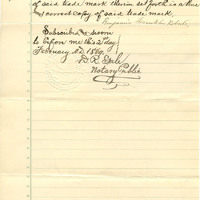 of said trade mark therein set forth is a true
& correct copy of said trade mark,
Benjamin Franklin
Subscribed & sworn
to before me this 2d day
February A.D. 1869.
D. R.
Notary Public